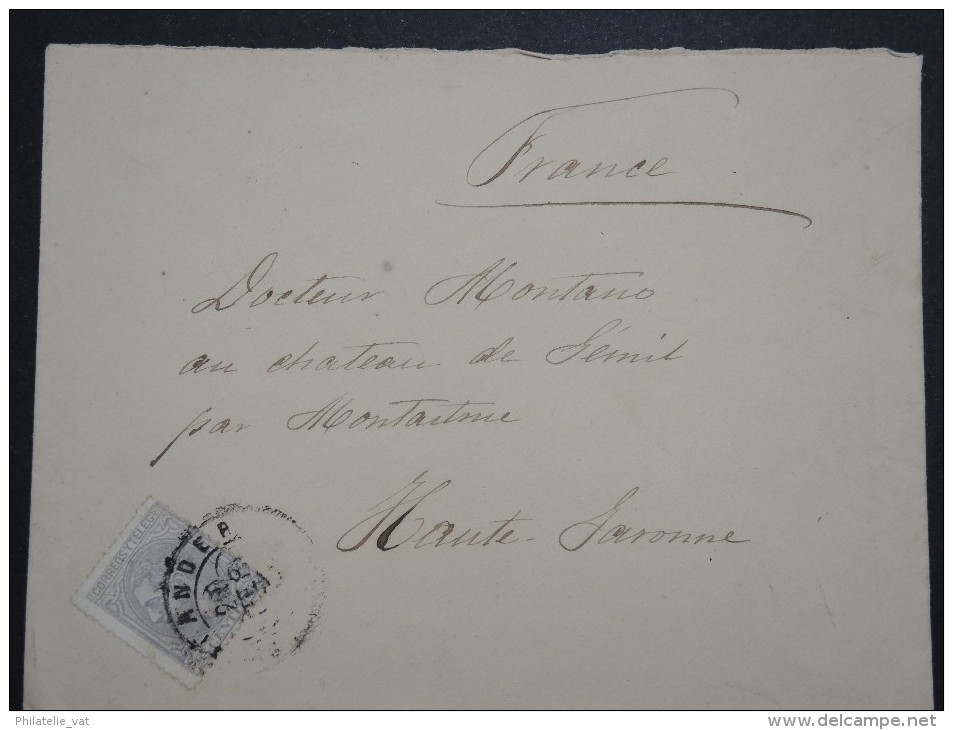 France
Docteur Montano
au chateau de Gémil
par Montastruc
Haute-Garonne
CORREOS Y TELEGS
ANDER
Philatelie_vat
www.delcampe.net